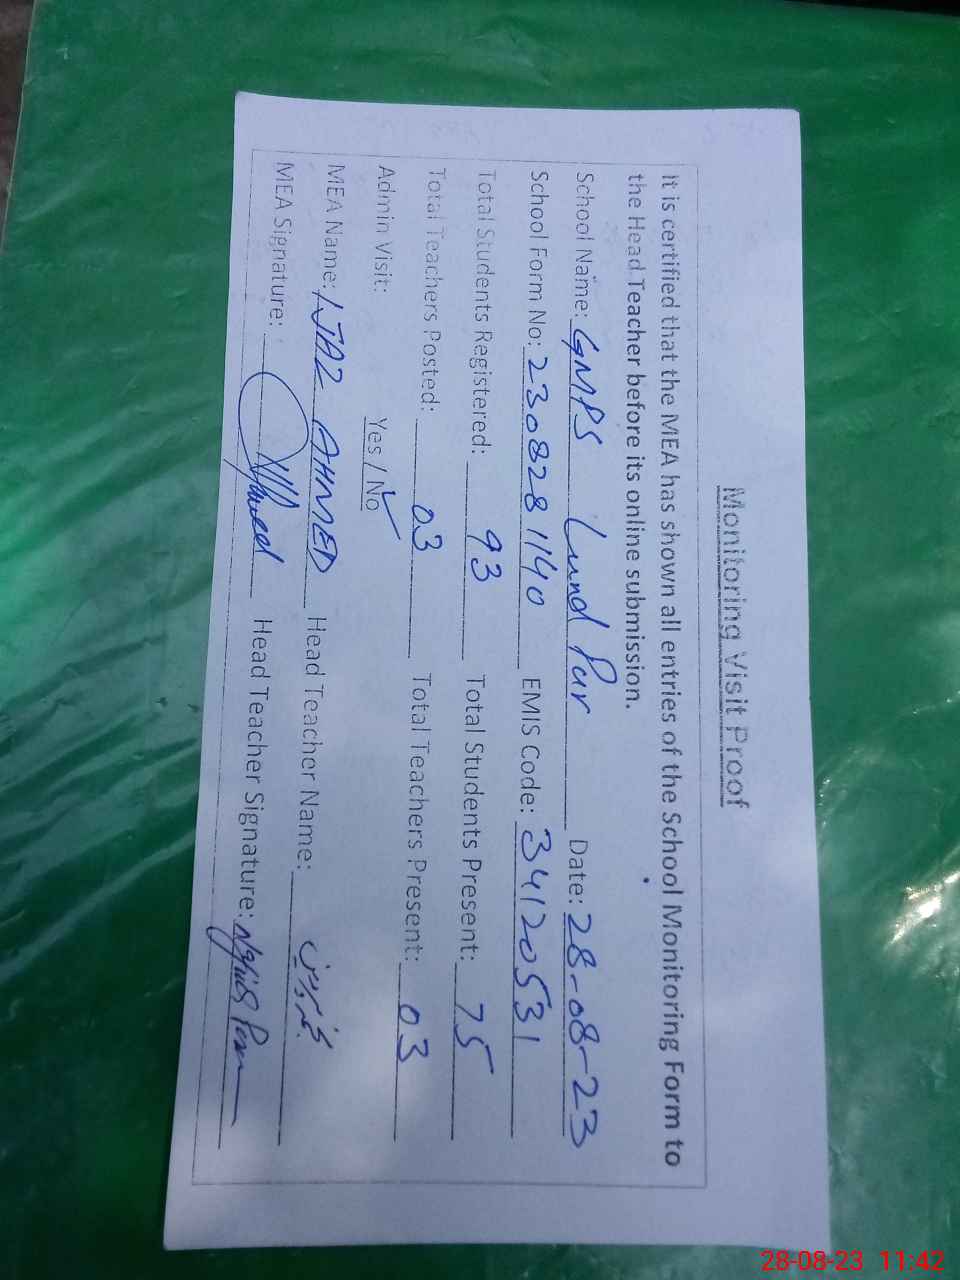 Monitoring Visit Proof
It is certified that the MEA has shown all entries of the School Monitoring Form to
the Head Teacher before its online submission.
School Name: GMPS Lund Pur Date: 28-08-23
School Form No: 2308281140 EMIS Code: 34120531
Total Students Registered: 93 Total Students Present: 75
Total Teachers Posted: 03 Total Teachers Present: 03
Admin Visit: Yes / No ✓
MEA Name: IJAZ AHMED Head Teacher Name:
MEA Signature: Ahmed Head Teacher Signature:
28-08-23 11:42